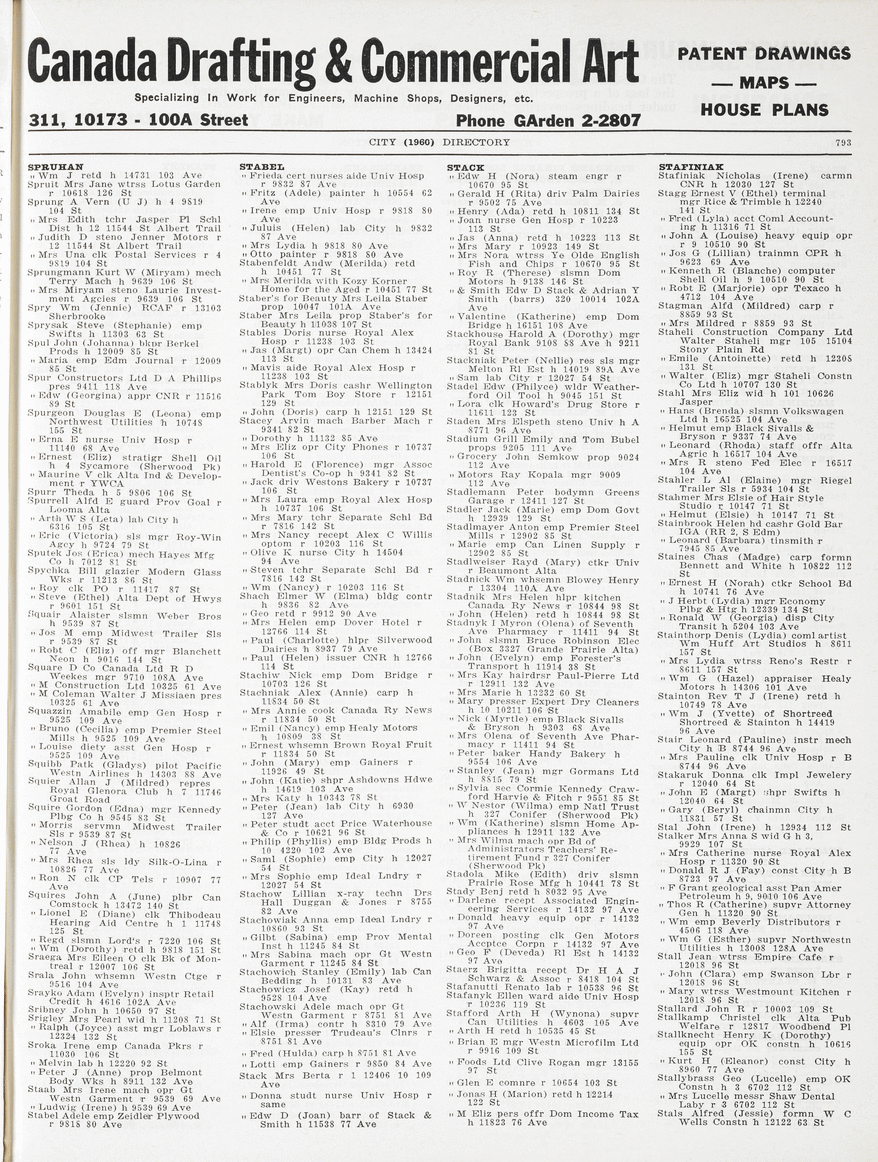 Canada Drafting & Commercial Art
Specializing In Work for Engineers, Machine Shops, Designers, etc.
311, 10173 - 100A Street
Phone GArden 2-2807
PATENT DRAWINGS
— MAPS —
HOUSE PLANS
CITY (1960) DIRECTORY
793
SPRUHAN
" Wm J retd h 14731 103 Ave
Spruit Mrs Jane wtrss Lotus Garden
r 10618 126 St
Sprung A Vern (U J) h 4 9819
104 St
" Mrs Edith tchr Jasper Pl Schl
Dist h 12 11544 St Albert Trail
" Judith D steno Jenner Motors r
12 11544 St Albert Trail
" Mrs Una clk Postal Services r 4
9819 104 St
Sprungmann Kurt W (Miryam) mech
Terry Mach h 9639 106 St
" Mrs Miryam steno Laurie Invest-
ment Agcies r 9639 106 St
Spry Wm (Jennie) RCAF r 13103
Sherbrooke
Sprysak Steve (Stephanie) emp
Swifts h 11303 63 St
Spul John (Johanna) bkpr Berkel
Prods h 12009 85 St
" Maria emp Edm Journal r 12009
85 St
Spur Constructors Ltd D A Phillips
pres 9411 118 Ave
" Edw (Georgina) appr CNR r 11516
89 St
Spurgeon Douglas E (Leona) emp
Northwest Utilities h 10748
155 St
" Erna E nurse Univ Hosp r
11140 68 Ave
" Ernest (Eliz) stratigr Shell Oil
h 4 Sycamore (Sherwood Pk)
" Maurine V clk Alta Ind & Develop-
ment r YWCA
Spurr Theda h 5 9806 106 St
Spurrell Alfd E guard Prov Gaol r
Looma Alta
" Arth W S (Leta) lab City h
6316 105 St
" Eric (Victoria) sls mgr Roy-Win
Agcy h 9724 79 St
Sputek Jos (Erica) mech Hayes Mfg
Co h 7012 81 St
Spychka Bill glazier Modern Glass
Wks r 11213 86 St
" Roy clk PO r 11417 87 St
" Steve (Ethel) Alta Dept of Hwys
r 9601 151 St
Squair Alaister slsmn Weber Bros
h 9539 87 St
" Jos M emp Midwest Trailer Sls
r 9539 87 St
" Robt C (Eliz) off mgr Blanchett
Neon h 9016 144 St
Square D Co Canada Ltd R D
Weekes mgr 9710 108A Ave
" M Construction Ltd 10325 61 Ave
" M Coleman Walter J Missiaen pres
10325 61 Ave
Squazzin Amabile emp Gen Hosp r
9525 109 Ave
" Bruno (Cecilia) emp Premier Steel
Mills h 9525 109 Ave
" Louise diety asst Gen Hosp r
9525 109 Ave
Squibb Patk (Gladys) pilot Pacific
Westn Airlines h 14303 88 Ave
Squier Allan J (Mildred) repres
Royal Glenora Club h 7 11746
Groat Road
Squire Gordon (Edna) mgr Kennedy
Plbg Co h 9545 83 St
" Morris servmn Midwest Trailer
Sls r 9539 87 St
" Nelson J (Rhea) h 10826
77 Ave
" Mrs Rhea sls ldy Silk-O-Lina r
10826 77 Ave
" Ron N clk CP Tels r 10907 77
Ave
Squires John A (June) plbr Can
Comstock h 13472 140 St
" Lionel E (Diane) clk Thibodeau
Hearing Aid Centre h 1 11748
125 St
" Regd slsmn Lord's r 7220 106 St
" Wm (Dorothy) retd h 9818 151 St
Sraega Mrs Eileen O clk Bk of Mon-
treal r 12007 106 St
Srala John whsemn Westn Ctge r
9516 104 Ave
Srayko Adam (Evelyn) insptr Retail
Credit h 4616 102A Ave
Sribney John h 10650 97 St
Srigley Mrs Pearl wid h 11208 71 St
" Ralph (Joyce) asst mgr Loblaws r
12324 132 St
Sroka Irene emp Canada Pkrs r
11030 106 St
" Melvin lab h 12220 92 St
" Peter J (Anne) prop Belmont
Body Wks h 8911 132 Ave
Staab Mrs Irene mach opr Gt
Westn Garment r 9539 69 Ave
" Ludwig (Irene) h 9539 69 Ave
Stabel Adele emp Zeidler Plywood
r 9818 80 Ave
STABEL
" Frieda cert nurses aide Univ Hosp
r 9832 87 Ave
" Fritz (Adele) painter h 10554 62
Ave
" Irene emp Univ Hosp r 9818 80
Ave
" Juluis (Helen) lab City h 9832
87 Ave
" Mrs Lydia h 9818 80 Ave
" Otto painter r 9818 80 Ave
Stabenfeldt Andw (Merilda) retd
h 10451 77 St
" Mrs Merilda with Kozy Korner
Home for the Aged r 10451 77 St
Staber's for Beauty Mrs Leila Staber
prop 10047 101A Ave
Staber Mrs Leila prop Staber's for
Beauty h 11038 107 St
Stables Doris nurse Royal Alex
Hosp r 11238 103 St
" Jas (Margt) opr Can Chem h 13424
113 St
" Mavis aide Royal Alex Hosp r
11238 103 St
Stablyk Mrs Doris cashr Wellington
Park Tom Boy Store r 12151
129 St
" John (Doris) carp h 12151 129 St
Stacey Arvin mach Barber Mach r
9341 82 St
" Dorothy h 11132 85 Ave
" Mrs Eliz opr City Phones r 10737
106 St
" Harold E (Florence) mgr Assoc
Dentist's Co-op h 9341 82 St
" Jack driv Westons Bakery r 10737
106 St
" Mrs Laura emp Royal Alex Hosp
h 10737 106 St
" Mrs Mary tchr Separate Schl Bd
r 7816 142 St
" Mrs Nancy recept Alex C Willis
optom r 10203 116 St
" Olive K nurse City h 14504
94 Ave
" Steven tchr Separate Schl Bd r
7816 142 St
" Wm (Nancy) r 10203 116 St
Shach Elmer W (Elma) bldg contr
h 9836 82 Ave
" Geo retd r 9912 90 Ave
" Mrs Helen emp Dover Hotel r
12766 114 St
" Paul (Charlotte) hlpr Silverwood
Dairies h 8937 79 Ave
" Paul (Helen) issuer CNR h 12766
114 St
Stachiw Nick emp Dom Bridge r
10703 126 St
Stachniak Alex (Annie) carp h
11834 50 St
" Mrs Annie cook Canada Ry News
r 11834 50 St
" Emil (Nancy) emp Healy Motors
h 10809 38 St
" Ernest whsemn Brown Royal Fruit
r 11834 50 St
" John (Mary) emp Gainers r
11926 49 St
" John (Katie) shpr Ashdowns Hdwe
h 14619 103 Ave
" Mrs Katy h 10343 78 St
" Peter (Jean) lab City h 6930
127 Ave
" Peter studt acct Price Waterhouse
& Co r 10621 96 St
" Philip (Phyllis) emp Bldg Prods h
10 4229 102 Ave
" Saml (Sophie) emp City h 12027
54 St
" Mrs Sophie emp Ideal Lndry r
12027 54 St
Stachow Lillian x-ray techn Drs
Hall Duggan & Jones r 8755
82 Ave
Stachowiak Anna emp Ideal Lndry r
10860 93 St
" Gilbt (Sabina) emp Prov Mental
Inst h 11245 84 St
" Mrs Sabina mach opr Gt Westn
Garment r 11245 84 St
Stachowich Stanley (Emily) lab Can
Bedding h 10131 83 Ave
Stachowicz Josef (Kay) retd h
9528 104 Ave
Stachowski Adele mach opr Gt
Westn Garment r 8751 81 Ave
" Alf (Irma) contr h 8310 79 Ave
" Elsie presser Trudeau's Clnrs r
8751 81 Ave
" Fred (Hulda) carp h 8751 81 Ave
" Lotti emp Gainers r 9850 84 Ave
Stack Mrs Berta r 1 12406 10 109
Ave
" Donna studt nurse Univ Hosp r
same
" Edw D (Joan) barr of Stack &
Smith h 11538 77 Ave
STACK
" Edw H (Nora) steam engr r
10670 95 St
" Gerald H (Rita) driv Palm Dairies
r 9502 75 Ave
" Henry (Ada) retd h 10811 134 St
" Joan nurse Gen Hosp r 10223
113 St
" Jas (Anna) retd h 10223 113 St
" Mrs Mary r 10923 149 St
" Mrs Nora wtrss Ye Olde English
Fish and Chips r 10670 95 St
" Roy R (Therese) slsmn Dom
Motors h 9138 146 St
" & Smith Edw D Stack & Adrian Y
Smith (barrs) 320 10014 102A
Ave
" Valentine (Katherine) emp Dom
Bridge h 16151 108 Ave
Stackhouse Harold A (Dorothy) mgr
Royal Bank 9108 88 Ave h 9211
81 St
Stackniak Peter (Nellie) res sls mgr
Melton Rl Est h 14019 89A Ave
" Sam lab City r 12027 54 St
Stadel Edw (Philyce) wldr Weather-
ford Oil Tool h 9045 151 St
" Lora clk Howard's Drug Store r
11611 123 St
Staden Mrs Elspeth steno Univ h A
8771 96 Ave
Stadium Grill Emily and Tom Bubel
props 9205 111 Ave
" Grocery John Semkow prop 9024
112 Ave
" Motors Ray Kopala mgr 9009
112 Ave
Stadlemann Peter bodymn Greens
Garage r 12411 127 St
Stadler Jack (Marie) emp Dom Govt
h 12939 129 St
Stadlmayer Anton emp Premier Steel
Mills r 12902 85 St
" Marie emp Can Linen Supply r
12902 85 St
Stadlweiser Rayd (Mary) ctkr Univ
r Beaumont Alta
Stadnick Wm whsemn Blowey Henry
r 13304 110A Ave
Stadnik Mrs Helen hlpr kitchen
Canada Ry News r 10844 98 St
" John (Helen) retd h 10844 98 St
Stadnyk I Myron (Olena) of Seventh
Ave Pharmacy r 11411 94 St
" John slsmn Bruce Robinson Elec
(Box 3327 Grande Prairie Alta)
" John (Evelyn) emp Forester's
Transport h 11914 38 St
" Mrs Kay hairdrsr Paul-Pierre Ltd
r 12911 132 Ave
" Mrs Marie h 13232 60 St
" Mary presser Expert Dry Cleaners
h 10 10211 106 St
" Nick (Myrtle) emp Black Sivalls
& Bryson h 9303 68 Ave
" Mrs Olena of Seventh Ave Phar-
macy r 11411 94 St
" Peter baker Handy Bakery h
9554 106 Ave
" Stanley (Jean) mgr Gormans Ltd
h 8815 79 St
" Sylvia sec Cormie Kennedy Craw-
ford Harvie & Fitch r 9551 85 St
" W Nestor (Wilma) emp Natl Trust
h 327 Conifer (Sherwood Pk)
" Wm (Katherine) slsmn Home Ap-
pliances h 12911 132 Ave
" Mrs Wilma mach opr Bd of
Administrators Teachers' Re-
tirement Fund r 327 Conifer
(Sherwood Pk)
Stadola Mike (Edith) driv slsmn
Prairie Rose Mfg h 10441 78 St
Stady Benj retd h 8032 95 Ave
" Darlene recept Associated Engin-
eering Services r 14132 97 Ave
" Donald heavy equip opr r 14132
97 Ave
" Doreen posting clk Gen Motors
Accptce Corpn r 14132 97 Ave
" Geo F (Deveda) Rl Est h 14132
97 Ave
Staerz Brigitta recept Dr H A J
Schwarz & Assoc r 8418 104 St
Stafanutti Renato lab r 10538 96 St
Stafanyk Ellen ward aide Univ Hosp
r 10236 119 St
Stafford Arth H (Wynona) supvr
Can Utilities h 4603 105 Ave
" Arth H retd h 10535 45 St
" Brian E mgr Westn Microfilm Ltd
r 9916 109 St
" Foods Ltd Clive Rogan mgr 13155
97 St
" Glen E comnre r 10654 103 St
" Jonas H (Marion) retd h 12214
122 St
" M Eliz pers offr Dom Income Tax
h 11823 76 Ave
STAFINIAK
Stafiniak Nicholas (Irene) carmn
CNR h 12030 127 St
Stagg Ernest V (Ethel) terminal
mgr Rice & Trimble h 12240
141 St
" Fred (Lyla) acct Coml Account-
ing h 11316 71 St
" John A (Louise) heavy equip opr
r 9 10510 90 St
" Jos G (Lillian) trainmn CPR h
9623 69 Ave
" Kenneth R (Blanche) computer
Shell Oil h 9 10510 90 St
" Robt E (Marjorie) opr Texaco h
4712 104 Ave
Stagman Alfd (Mildred) carp r
8859 93 St
" Mrs Mildred r 8859 93 St
Staheli Construction Company Ltd
Walter Staheli mgr 105 15104
Stony Plain Rd
" Emile (Antoinette) retd h 12308
131 St
" Walter (Eliz) mgr Staheli Constn
Co Ltd h 10707 130 St
Stahl Mrs Eliz wid h 101 10626
Jasper
" Hans (Brenda) slsmn Volkswagen
Ltd h 16525 104 Ave
" Helmut emp Black Sivalls &
Bryson r 9337 74 Ave
" Leonard (Rhoda) staff offr Alta
Agric h 16517 104 Ave
" Mrs R steno Fed Elec r 16517
104 Ave
Stahler L Al (Elaine) mgr Riegel
Trailer Sls r 5934 104 St
Stahmer Mrs Elsie of Hair Style
Studio r 10147 71 St
" Helmut (Elsie) h 10147 71 St
Stainbrook Helen hd cashr Gold Bar
IGA (RR 2, S Edm)
" Leonard (Barbara) tinsmith r
7945 85 Ave
Staines Chas (Madge) carp formn
Bennett and White h 10822 112
St
" Ernest H (Norah) ctkr School Bd
h 10741 76 Ave
" J Herbt (Lydia) mgr Economy
Plbg & Htg h 12339 134 St
" Ronald W (Georgia) disp City
Transit h 5204 103 Ave
Stainthorp Denis (Lydia) coml artist
Wm Huff Art Studios h 8611
157 St
" Mrs Lydia wtrss Reno's Restr r
8611 157 St
" Wm G (Hazel) appraiser Healy
Motors h 14306 101 Ave
Stainton Rev T J (Irene) retd h
10749 78 Ave
" Wm J (Yvette) of Shortreed
Shortreed & Stainton h 14419
96 Ave
Stair Leonard (Pauline) instr mech
City h B 8744 96 Ave
" Mrs Pauline clk Univ Hosp r B
8744 96 Ave
Stakaruk Donna clk Impl Jewelery
r 12040 64 St
" John E (Margt) shpr Swifts h
12040 64 St
" Gary (Beryl) chainmn City h
11831 57 St
Stal John (Irene) h 12934 112 St
Stalker Mrs Anna S wid G h 3,
9929 107 St
" Mrs Catherine nurse Royal Alex
Hosp r 11320 90 St
" Donald R J (Fay) const City h B
8723 97 Ave
" F Grant geological asst Pan Amer
Petroleum h 9, 9010 106 Ave
" Thos R (Catherine) supvr Attorney
Gen h 11320 90 St
" Wm emp Beverly Distributors r
4506 118 Ave
" Wm G (Esther) supvr Northwestn
Utilities h 13008 128A Ave
Stall Jean wtrss Empire Cafe r
12018 96 St
" John (Clara) emp Swanson Lbr r
12018 96 St
" Mary wtrss Westmount Kitchen r
12018 96 St
Stallard John R r 10003 109 St
Stallkamp Christel clk Alta Pub
Welfare r 12817 Woodbend Pl
Stallknecht Henry K (Dorothy)
equip opr OK constn h 10616
155 St
" Kurt H (Eleanor) const City h
8960 77 Ave
Stallybrass Geo (Lucelle) emp OK
Constn h 3 6702 112 St
" Mrs Lucelle messr Shaw Dental
Laby r 3 6702 112 St
Stals Alfred (Jessie) formn W C
Wells Constn h 12122 63 St